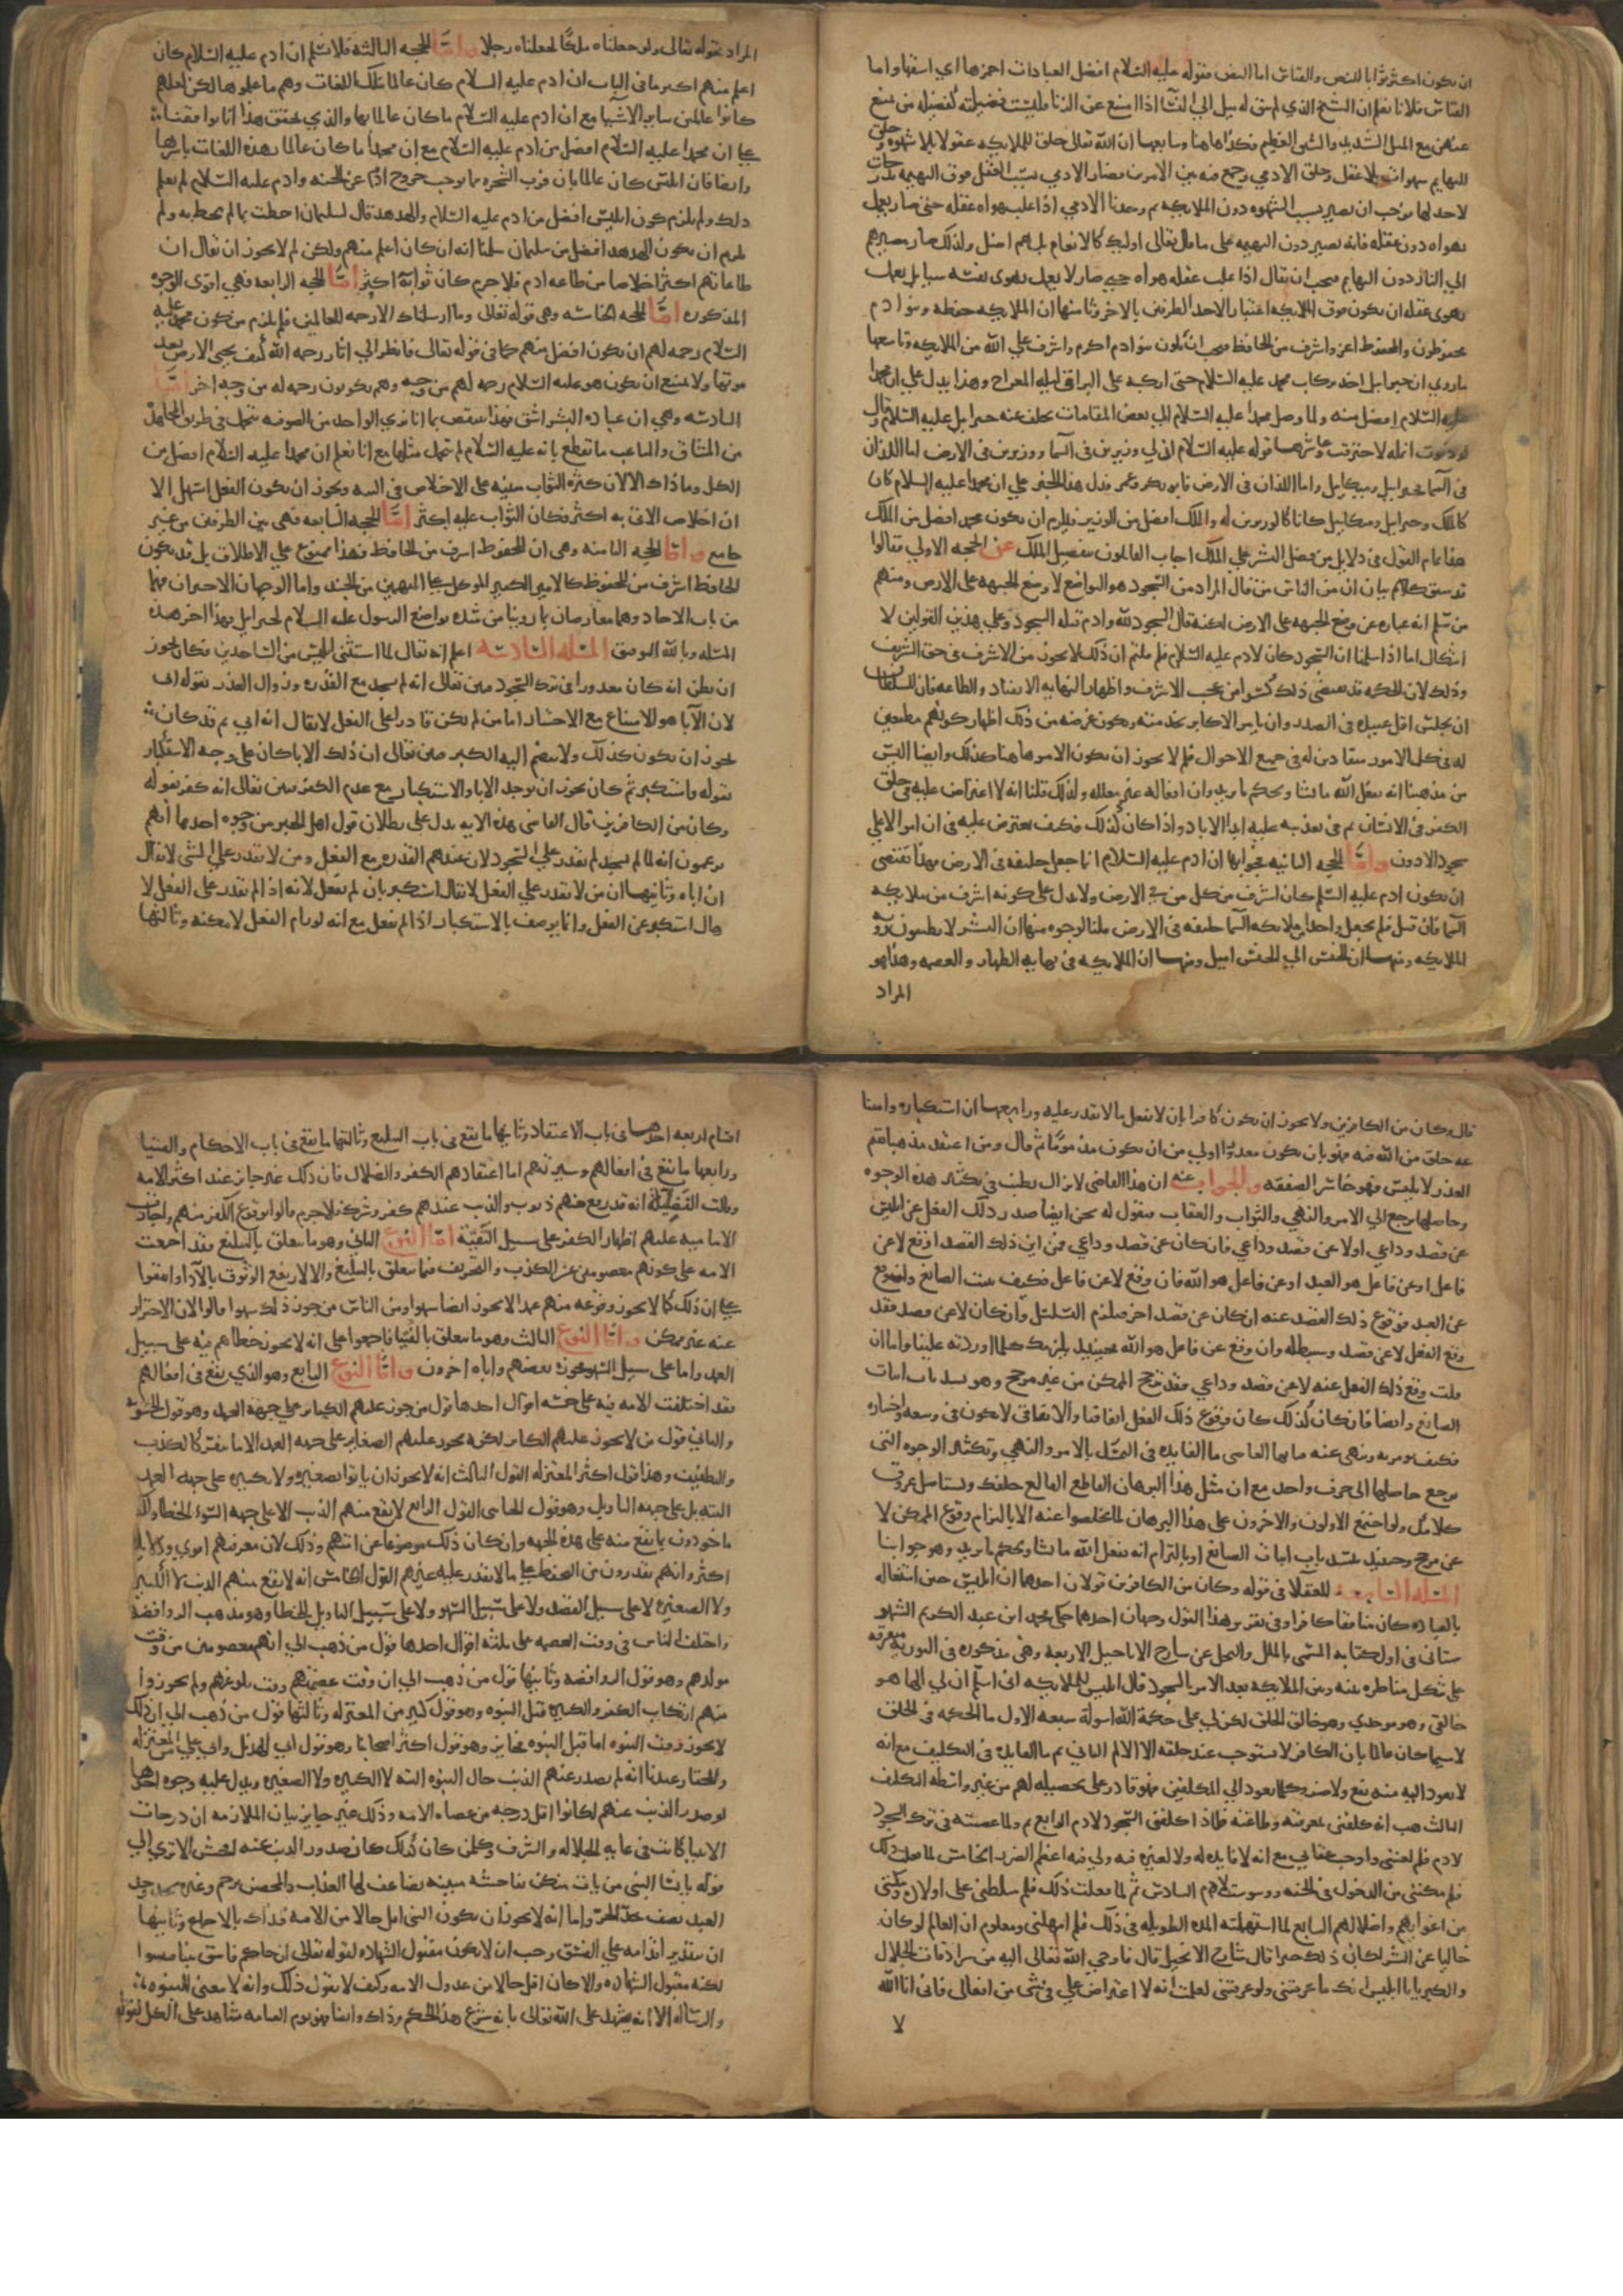 ان يكون اكثر ثوابا للنص والقياس اما النص فقوله عليه السلام افضل العبادات احمزها اي اشقها واما
القياس فلانا نعلم ان الشيخ الذي لم يبق له ميل الي النسا اذا امتنع عن الزنا فليست فضيلته كفضيله من يمتنع
عنهن مع الميل الشديد والشوق العظيم فكذا هاهنا وسابعها ان الله تعالى خلق للملايكه عقولا بلا شهوه وخلق
للبهايم شهوات بلا عقل وخلق الادمي وجمع فيه بين الامرين فصار الادمي بسبب العقل فوق البهيمه بدرجات
لاحد لها فوجب ان يصير بسبب الشهوه دون الملايكه ثم وجدنا الادمي اذا غلب هواه عقله حتى صار يعمل
بهواه دون عقله فانه يصير دون البهيمه على ما قال تعالى اوليك كالانعام بل هم اضل ولذلك صار مصيرهم
الي النار دون البهايم فيجب ان يقال اذا غلب عقله هواه حتى صار لا يعمل بهوى نفسه شيا بل يعمل
بهوى عقله ان يكون فوق الملايكه اعتبارا لاحد الطرفين بالاخر وثامنها ان الملايكه حفظه وبنو ادم
محفوظون والمحفوظ اعز واشرف من الحافظ فيجب ان يكون بنو ادم اكرم واشرف علي الله من الملايكه وتاسعها
ما روي ان جبرايل اخذ بركاب محمد عليه السلام حتى اركبه على البراق ليله المعراج وهذا يدل علي ان محمدا
عليه السلام افضل منه ولما وصل محمد عليه السلام الي بعض المقامات تخلف عنه جبرايل عليه السلام وقال
لو دنوت انمله لاحترقت وعاشرها قوله عليه السلام ان لي وزيرين في السما ووزيرين في الارض اما اللذان
في السما فجبرايل وميكايل واما اللذان في الارض فابو بكر وعمر فدل هذا الخبر علي ان محمدا عليه السلام كان
كالملك وجبرايل وميكايل كانا كالوزيرين له والملك افضل من الوزير فيلزم ان يكون محمد افضل من الملك
هذا تمام القول في دلايل من فضل البشر علي الملك اجاب القايلون بتفضيل الملك عن الحجه الاولي فقالوا
قد سبق كلام بيان ان من الناس من قال المراد من السجود هو التواضع لا وضع الجبهه على الارض ومنهم
من سلم انه عباره عن وضع الجبهه على الارض لكنه قال السجود لله وادم قبله السجود وعلي هذين القولين لا
اشكال اما اذا سلمنا ان السجود كان لادم عليه السلام فلم قلتم ان ذلك لا يجوز من الاشرف في حق الشريف
وذلك لان الحكمه قد تقتضي ذلك كثيرا من حب الاشرف واظهار النهايه الانقياد والطاعه فان للسلطان
ان يجلس اقل عبيده في الصدر وان يامر الاكابر بخدمته ويكون غرضه من ذلك اظهار كونهم مطيعين
له في كل الامور منقادين له في جميع الاحوال فلم لا يجوز ان يكون الامر هاهنا كذلك وايضا اليس
من مذهبنا انه يفعل الله ما يشا ويحكم ما يريد وان افعاله غير معلله ولذلك قلنا انه لا اعتراض عليه في خلق
الكفر في الانسان ثم في تعذيبه عليه ابد الاباد واذا كان كذلك فكيف يعترض عليه في ان امر الاعلي
بسجود الادون واما الحجه الثانيه فجوابها ان ادم عليه السلام انما جعل خليفه في الارض فهذا يقتضي
ان يكون ادم عليه السلم كان اشرف من كل من في الارض ولا يدل على كونه اشرف من ملايكه
السما فان قيل فلم لم يجعل واحدا من ملايكه السما خليفه في الارض قلنا لوجوه منها ان البشر لا يطيقون رويه
الملايكه ومنها ان الجنس الي الجنس اميل ومنها ان الملايكه في نهايه الطهاره والعصمه وهذا هو
المراد
المراد بقوله تعالى ولو جعلناه ملكا لجعلناه رجلا واما الحجه الثالثه فلا نسلم ان ادم عليه السلام كان
اعلم منهم اكثر ما في الباب ان ادم عليه السلام كان عالما بتلك اللغات وهم ما علموها لكن لعلهم
كانوا عالمين بساير الاشيا مع ان ادم عليه السلام ما كان عالما بها والذي يحقق هذا انا توافقنا
على ان محمدا عليه السلام افضل من ادم عليه السلام مع ان محمدا ما كان عالما بهذه اللغات باسرها
وايضا فان ابليس كان عالما بان قرب الشجره مما يوجب خروج ادم عن الجنه وادم عليه السلام لم يعلم
ذلك ولم يلزم كون ابليس افضل من ادم عليه السلام والهدهد قال لسليمان احطت بما لم تحط به ولم
يلزم ان يكون الهدهد افضل من سليمان سلمنا انه كان اعلم منهم ولكن لم لا يجوز ان يقال ان
طاعاتهم اكثر اخلاصا من طاعه ادم فلا جرم كان ثوابهم اكثر اما الحجه الرابعه فهي اقوى الوجوه
المذكوره اما الحجه الخامسه وهي قوله تعالى وما ارسلناك الا رحمه للعالمين فلم يلزم من كون محمد عليه
السلام رحمه لهم ان يكون افضل منهم كما في قوله تعالى فانظر الي اثار رحمه الله كيف يحيي الارض بعد
موتها ولا يمتنع ان يكون هو عليه السلام رحمه لهم من وجه وهم يكونون رحمه له من وجه اخر اما
السادسه وهي ان عباده البشر اشق فهذا ينتقض بما انا نري الواحد من الصوفيه يتحمل في طريق المجاهده
من المشاق والمتاعب ما نقطع بانه عليه السلام لم يتحمل مثلها مع انا نعلم ان محمدا عليه السلام افضل من
الكل وما ذاك الا لان كثره الثواب مبنيه على الاخلاص في النيه ويجوز ان يكون الفعل اسهل الا
ان اخلاص الاتي به اكثر فكان الثواب عليه اكثر اما الحجه السابعه فهي جمع بين الطرفين من غير
جامع واما الحجه الثامنه وهي ان المحفوظ اشرف من الحافظ فهذا ممنوع علي الاطلاق بل قد يكون
الحافظ اشرف من المحفوظ كالامير الكبير الموكل على المتهمين من الجند واما الوجهان الاخيران فهما
من باب الاحاد وهما معارضان بما روينا من شده تواضع الرسول عليه السلام لجبرايل فهذا اخر هذه
المسله وبالله التوفيق المسله السادسه اعلم انه تعالى لما استثنى ابليس من الساجدين فكان يجوز
ان يظن انه كان معذورا في ترك السجود فبين تعالى انه لم يسجد مع القدره وزوال العذر بقوله ابي
لان الابا هو الامتناع مع الاختيار اما من لم يكن قادرا على الفعل لا يقال انه ابي ثم قد كان
يجوز ان يكون كذلك ولا ينضم اليه الكبر فبين تعالى ان ذلك الابا كان على وجه الاستكبار
بقوله واستكبر ثم كان يجوز ان يوجد الابا والاستكبار مع عدم الكفر فبين تعالى انه كفر بقوله
وكان من الكافرين قال القاضي هذه الايه تدل على بطلان قول اهل الجبر من وجوه احدها انهم
يزعمون انه لما لم يسجد لم يقدر علي السجود لان عندهم القدره مع الفعل ومن لا يقدر علي الشي لا يقال
ان اباه وثانيها ان من لا يقدر علي الفعل لا يقال استكبر بان لم يفعل لانه اذا لم يقدر على الفعل لا
يقال استكبر عن الفعل وانما يوصف بالاستكبار اذا لم يفعل مع انه لو رام الفعل لامكنه وثالثها
قال وكان من الكافرين ولا يجوز ان يكون كافرا بان لا يفعل ما لا يقدر عليه ورابعها ان استكباره وامتنا
عه خلق من الله فيه فهو بان يكون معذورا اولي من ان يكون مذموما ثم قال ومن اعتقد مذهبا يقيم
العذر لابليس فهو خاسر الصفقه والجواب عنه ان هذا القاضي لا يزال يطنب في تكثير هذه الوجوه
وحاصلها يرجع الي الامر والنهي والثواب والعقاب فنقول له نحن ايضا صدر ذلك الفعل عن ابليس
عن قصد وداعي او لا عن قصد وداعي فان كان عن قصد وداعي فمن اين ذلك القصد اوقع لا عن
فاعل او عن فاعل هو العبد او عن فاعل هو الله فان وقع لا عن فاعل فكيف يثبت الصانع وان وقع
عن العبد فوقوع ذلك القصد عنه ان كان عن قصد اخر فيلزم التسلسل وان كان لا عن قصد فقد
وقع الفعل لا عن قصد وسنبطله وان وقع عن فاعل هو الله فحينيذ يلزمك كلما اوردته علينا واما ان
قلت وقع ذلك الفعل عنه لا عن قصد وداعي فقد ترجح الممكن من غير مرجح وهو يسد باب اثبات
الصانع وايضا فان كان كذلك كان وقوع ذلك الفعل اتفاقيا والاتفاقي لا يكون في وسعه واختياره
فكيف يومر به وينهى عنه فيا ايها القاضي ما الفايده في التمسك بالامر والنهي وتكثير الوجوه التي
يرجع حاصلها الى حرف واحد مع ان مثل هذا البرهان القاطع القالع خلفك ويستاصل عروق
كلامك ولو اجتمع الاولون والاخرون على هذا البرهان لما تخلصوا عنه الا بالتزام وقوع الممكن لا
عن مرجح وحينيذ ينسد باب اثبات الصانع او بالتزام انه يفعل الله ما يشا ويحكم ما يريد وهو جوابنا
المسله السابعه للعقلا في قوله وكان من الكافرين قولان احدهما ان ابليس حين اشتغاله
بالعباده كان منافقا كافرا وفي تقرير هذا القول وجهان احدهما حكي محمد ابن عبد الكريم الشهر
ستاني في اول كتابه المسمى بالملل والنحل عن شارح الاناجيل الاربعه وهي مذكوره في التوريه متفرقه
على شكل مناظره بينه وبين الملايكه بعد الامر بالسجود قال ابليس للملايكه اني اسلم ان لي الها هو
خالقي وهو موجدي وهو خالق الخلق لكن لي على حكمة الله اسوله سبعه الاول ما الحكمه في الخلق
لا سيما كان عالما بان الكافر لا يستوجب عند خلقه الا الالم الثاني ثم ما الفايده في التكليف مع انه
لا يعود اليه منه نفع ولا ضر وكلما يعود الي المكلفين فهو قادر على تحصيله لهم من غير واسطه التكليف
الثالث هب انه كلفني بمعرفته وطاعته فلماذا كلفني السجود لادم الرابع ثم لما عصيته في ترك السجود
لادم فلم لعنني واوجب عقابي مع انه لا فايده له ولا لغيره فيه ولي فيه اعظم الضرر الخامس لما فعل ذلك
فلم مكنني من الدخول في الجنه ووسوست لادم السادس ثم لما فعلت ذلك فلم سلطني على اولاده ومكنني
من اغوايهم واضلالهم السابع لما استمهلته المده الطويله في ذلك فلم امهلني ومعلوم ان العالم لو كان
خاليا عن الشر لكان ذلك خيرا قال شارح الانجيل قال فاوحي الله تعالى اليه من سرادقات الجلال
والكبريا يا ابليس انك ما عرفتني ولو عرفتني لعلمت انه لا اعتراض علي في شي من افعالي فاني انا الله
لا
اقسام اربعه احدها في باب الاعتقاد وثانيها ما يقع في باب التبليغ وثالثها ما يقع في باب الاحكام والفتيا
ورابعها ما يقع في افعالهم وسيرتهم اما اعتقادهم الكفر والضلال فان ذلك غير جايز عند اكثر الامه
وقالت الفضيليه انه قد يقع منهم ذنوب والذنب عندهم كفر وشرك فلا جرم قالوا بوقوع الكفر منهم واجازت
الاماميه عليهم اظهار الكفر على سبيل التقيه اما النوع الثاني وهو ما يتعلق بالتبليغ فقد اجمعت
الامه على كونهم معصومين عن الكذب والتحريف فيما يتعلق بالتبليغ والا لارتفع الوثوق بالادا واتفقوا
على ان ذلك كما لا يجوز وقوعه منهم عمدا لا يجوز ايضا سهوا ومن الناس من جوز ذلك سهوا قالوا لان الاحتراز
عنه غير ممكن واما النوع الثالث وهو ما يتعلق بالفتيا فاجمعوا على انه لا يجوز خطاهم فيه على سبيل
العمد واما على سبيل السهو فجوزه بعضهم واباه اخرون واما النوع الرابع وهو الذي يقع في افعالهم
فقد اختلفت الامه فيه على خمسه اقوال احدها قول من جوز عليهم الكباير علي جهة العمد وهو قول الحشويه
والثاني قول من لا يجوز عليهم الكباير لكنه يجوز عليهم الصغاير على جهه العمد الا ما ينفر كالكذب
والتطفيف وهذا قول اكثر المعتزله القول الثالث انه لا يجوز ان ياتوا بصغيره ولا بكبيره على جهه العمد
البته بل على جهه التاويل وهو قول الجباي القول الرابع لا يقع منهم الذنب الا على جهه السهو والخطا ولكنهم
ماخوذون بما يقع منه على هذه الجهه وان كان ذلك موضوعا عن امتهم وذلك لان معرفتهم اقوي ودلايلهم
اكثر وانهم يقدرون من التحفظ علي ما لا يقدر عليه غيرهم القول الخامس انه لا يقع منهم الذنب لا الكبير
ولا الصغيره لا على سبيل القصد ولا على سبيل السهو ولا على سبيل التاويل والخطا وهو مذهب الروافضه
واختلف الناس في وقت العصمه على ثلثه اقوال احدها قول من ذهب الي انهم معصومين من وقت
مولدهم وهو قول الرافضه وثانيها قول من ذهب الي ان وقت عصمتهم وقت بلوغهم ولم يجوزوا
منهم ارتكاب الكفر والكبيره قبل النبوه وهو قول كثير من المعتزله وثالثها قول من ذهب الي ان ذلك
لا يجوز وقت النبوه اما قبل النبوه فجايز وهو قول اكثر اصحابنا وهو قول ابي الهذيل وابي علي من المعتزله
والمختار عندنا انه لم يصدر عنهم الذنب حال النبوه البته لا الكبيره ولا الصغيره ويدل عليه وجوه احدها
لو صدر الذنب عنهم لكانوا اقل درجه من عصاه الامه وذلك غير جايز بيان الملازمه ان درجات
الانبيا كانت في غايه الجلاله والشرف وكل من كان كذلك كان صدور الذنب عنه افحش الا تري الي
قوله يا نسا النبي من يات منكن بفاحشه مبينه يضاعف لها العذاب والمحصن يرجم وغيره يحد وحد
العبد نصف حد الحر واما انه لا يجوز ان يكون النبي اقل حالا من الامه فذاك بالاجماع وثانيها
ان بتقدير اقدامه على الفسق وجب ان لا يكون مقبول الشهاده لقوله تعالى ان جاكم فاسق بنبا فتبينوا
لكنه مقبول الشهاده والا كان اقل حالا من عدول الامه وكيف لا نقول ذلك وانه لا معنى للنبوه
والرساله الا انه يشهد على الله تعالى بانه شرع هذا الحكم وذاك وايضا فهو يوم القيامه شاهد على الكل لقوله